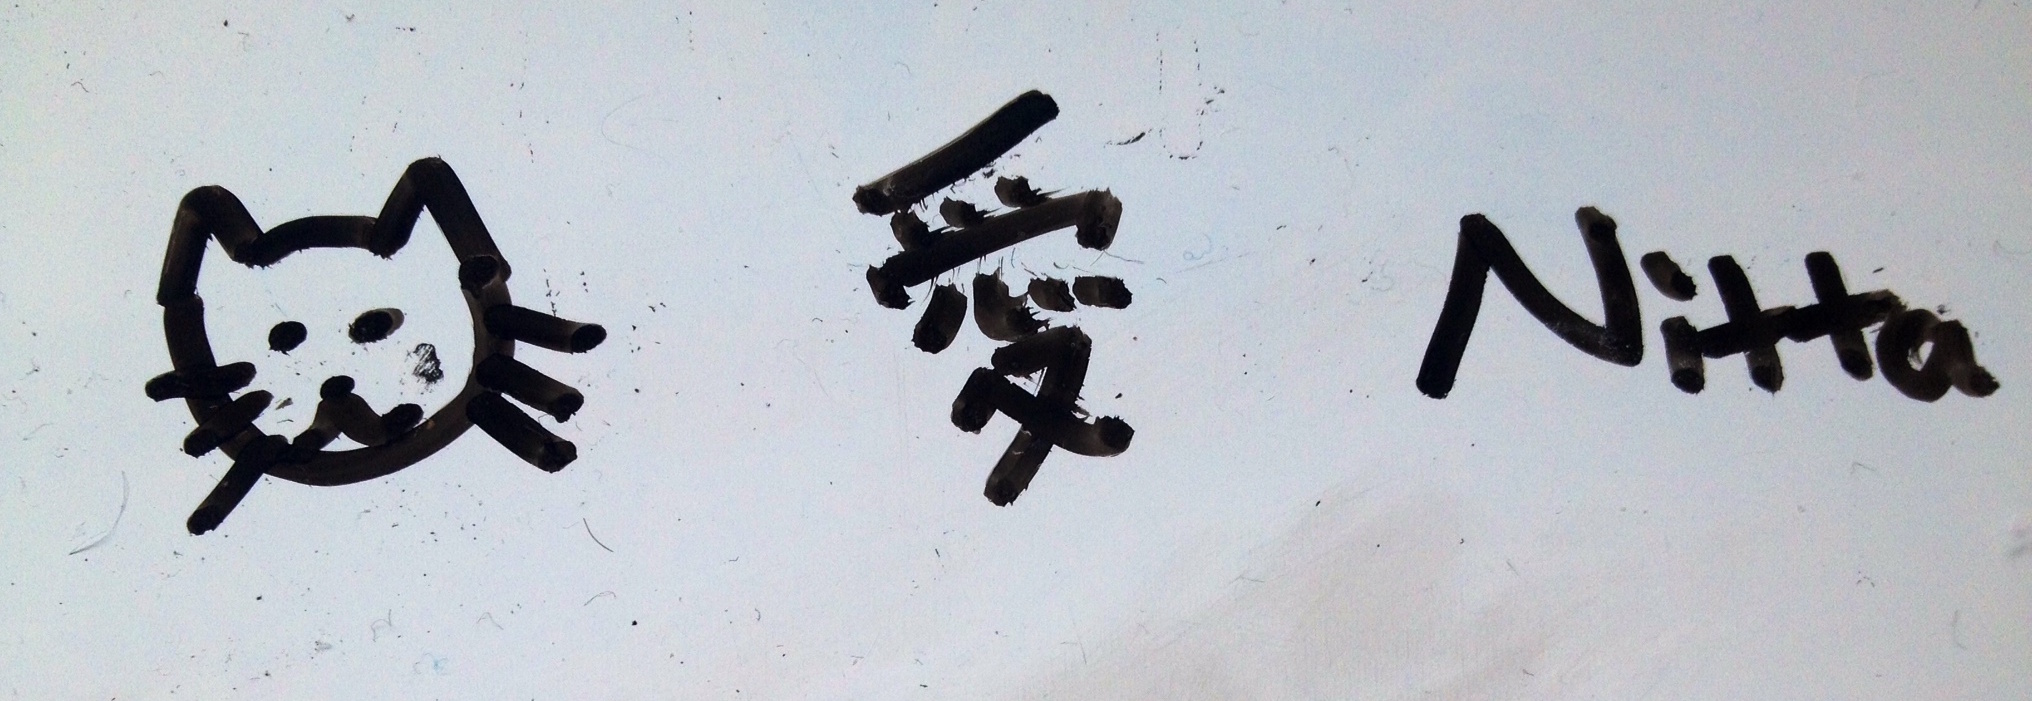 愛 Nitta